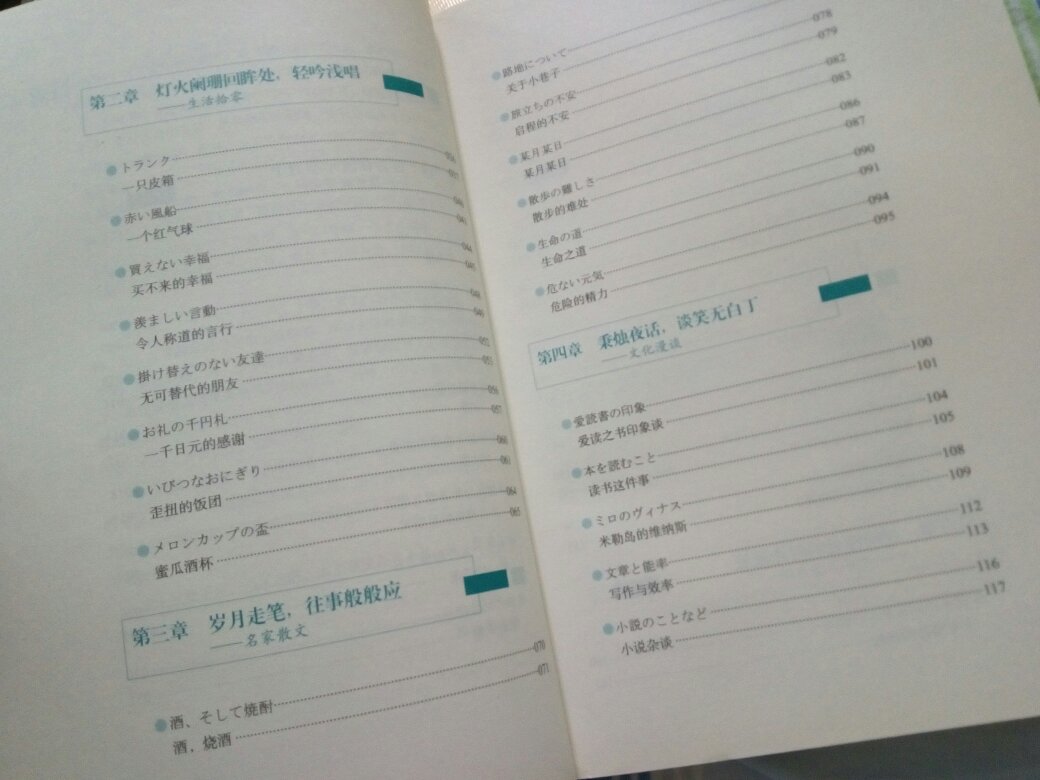 第二章 灯火阑珊回眸处，轻吟浅唱
——生活拾零
トランク 036
一只皮箱 037
赤い風船 040
一个红气球 041
買えない幸福 044
买不来的幸福 045
羨ましい言動 048
令人称道的言行 049
掛け替えのない友達 052
无可替代的朋友 053
お礼の千円札 056
一千日元的感谢 057
いびつなおにぎり 060
歪扭的饭团 061
メロンカップの盃 064
蜜瓜酒杯 065
第三章 岁月走笔，往事般般应
——名家散文
酒、そして焼酎 070
酒，烧酒 071
路地について
关于小巷子
旅立ちの不安 078
启程的不安 079
某月某日 082
某月某日 083
散歩の難しさ 086
散步的难处 087
生命の道 090
生命之道 091
危ない元気 094
危险的精力 095
第四章 秉烛夜话，谈笑无白丁
——文化漫谈
愛読書の印象 100
爱读之书印象谈 101
本を読むこと 104
读书这件事 105
ミロのヴィナス 108
米勒岛的维纳斯 109
文章と能率 112
写作与效率 113
小説のことなど 116
小说杂谈 117